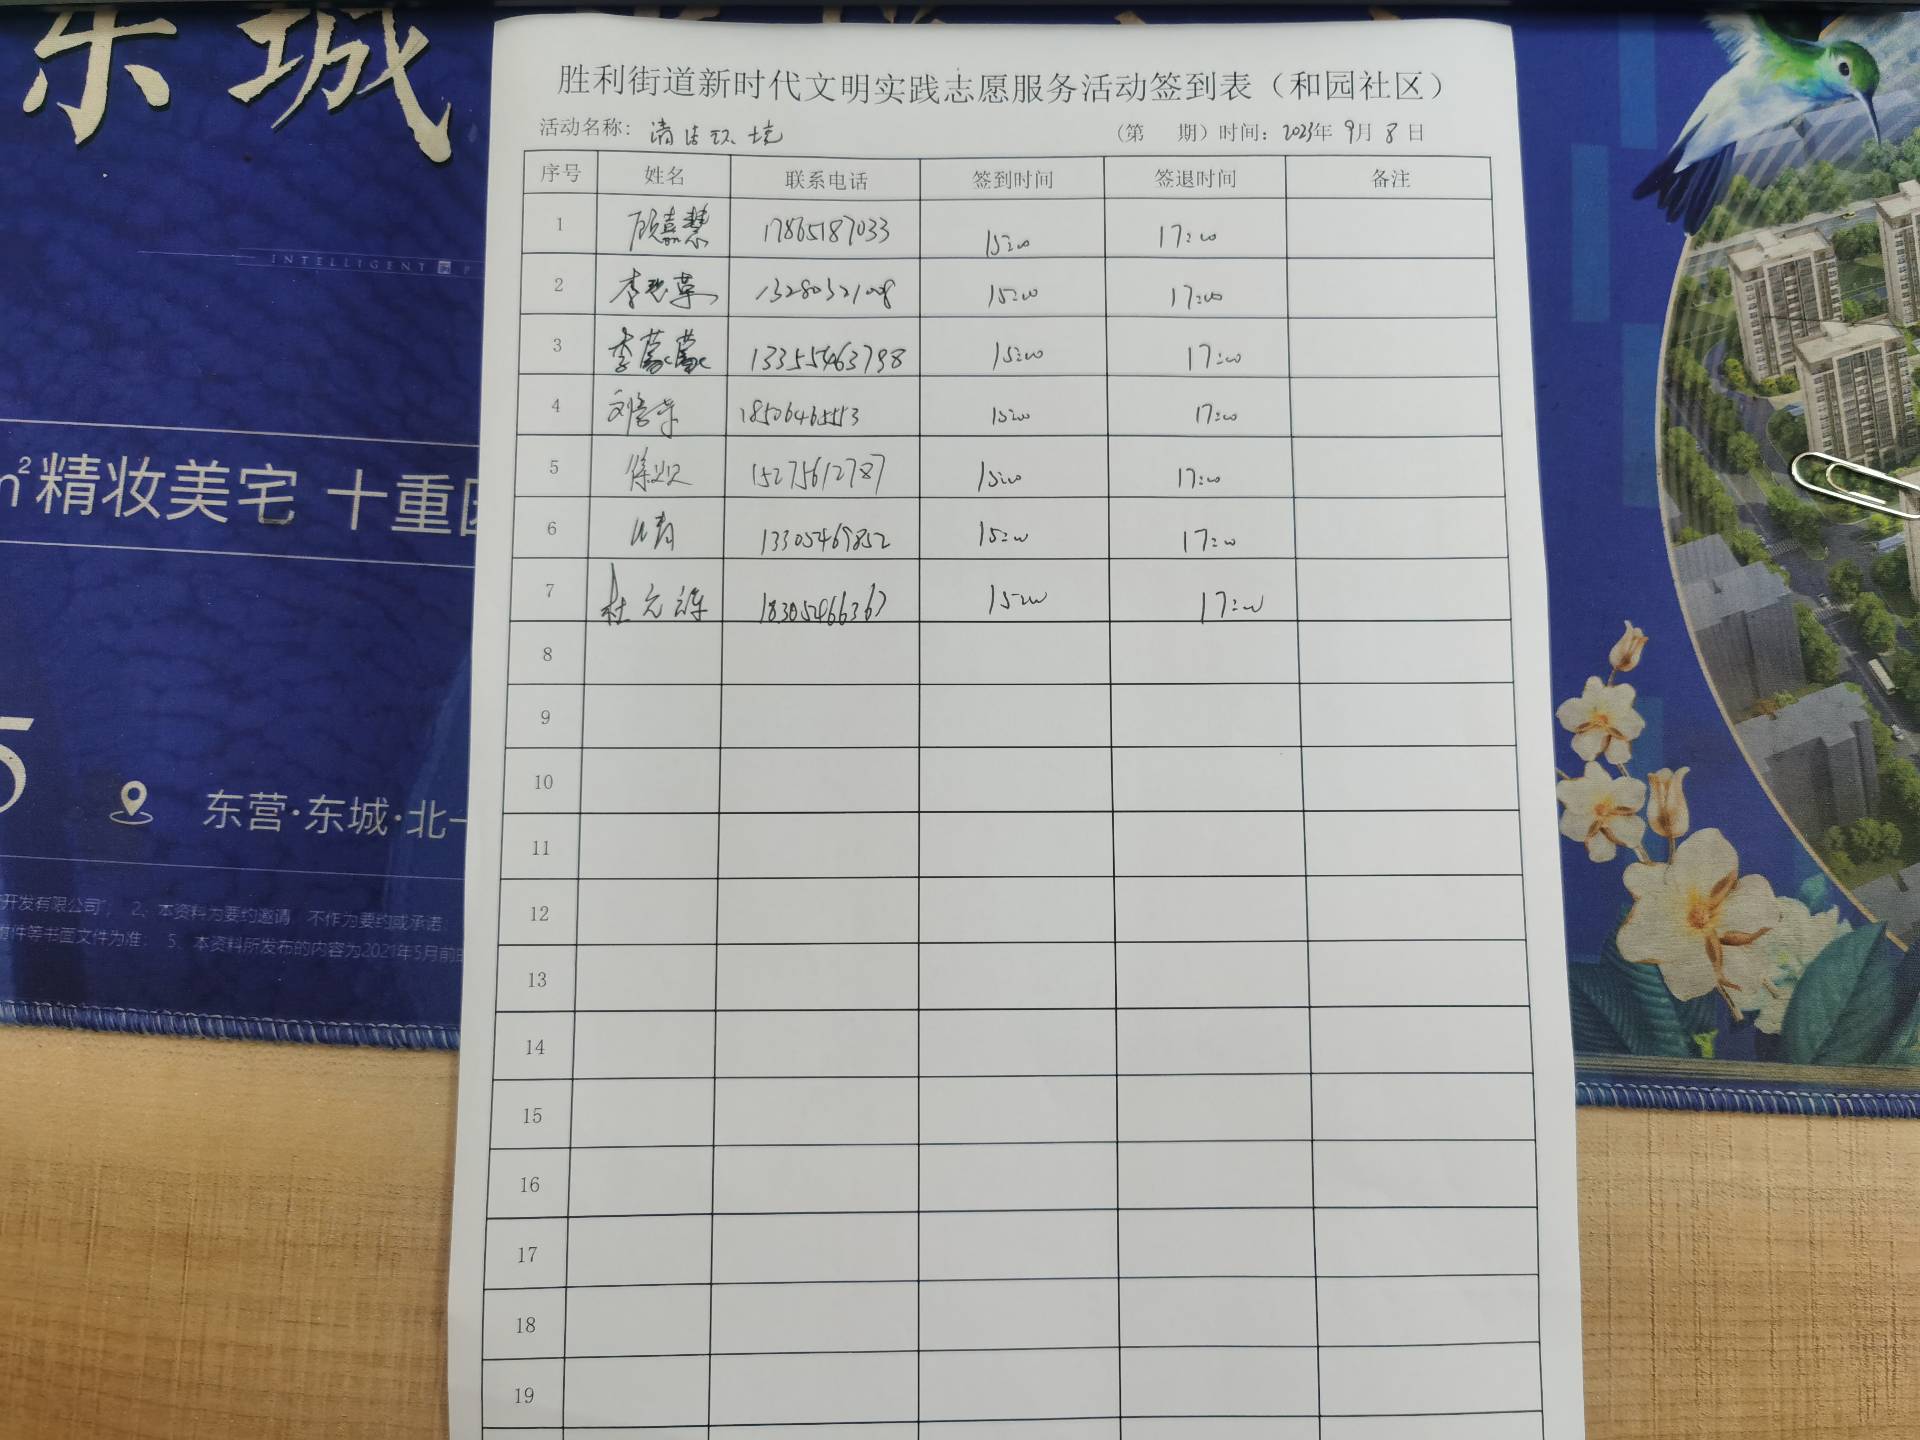 东城
INTELLIGENT
㎡精妆美宅 十重
5
东营·东城·北一
开发有限公司", 2、本资料为要约邀请 不作为要约或承诺
件等书面文件为准; 5、本资料所发布的内容为2021年5月前
胜利街道新时代文明实践志愿服务活动签到表（和园社区）
活动名称: 清洁环境 （第 期）时间: 2023年 9月 8 日
序号 姓名 联系电话 签到时间 签退时间 备注
1 顾嘉慧 17865187033 15:00 17:00
2 李 13280321008 15:00 17:00
3 李蒙蒙 13355463798 15:00 17:00
4 18506465553 15:00 17:00
5 15275612787 15:00 17:00
6 13305469852 15:00 17:00
7 杜元 18305466367 15:00 17:00
8
9
10
11
12
13
14
15
16
17
18
19